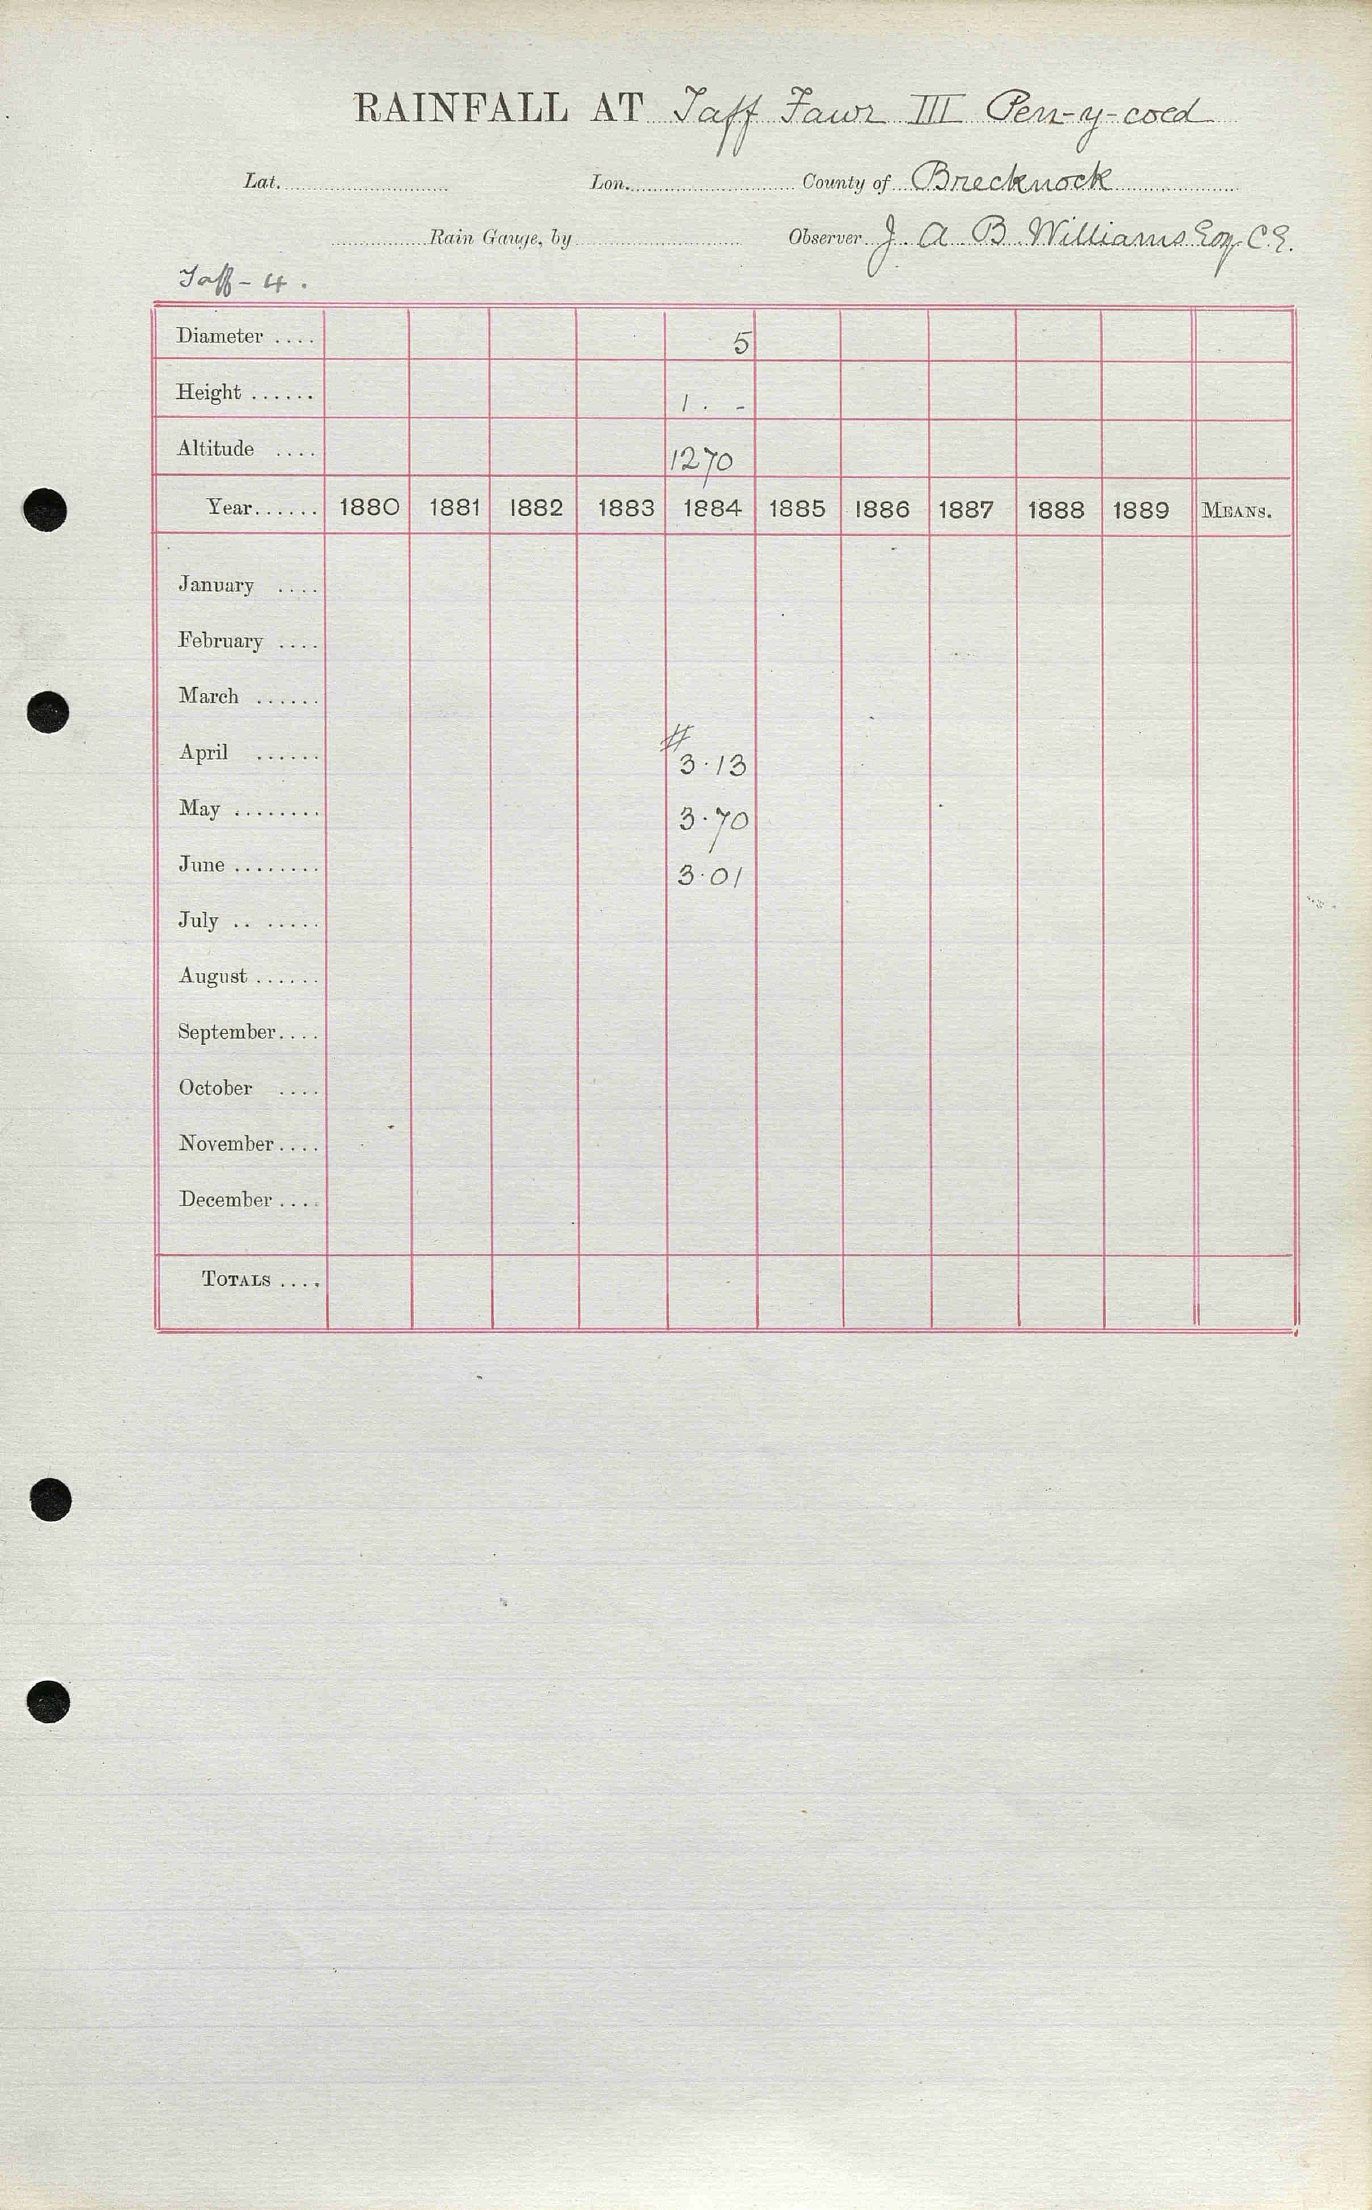 RAINFALL AT Taff Fawr III Pen-y-coed
Lat. Lon. County of Brecknock
Rain Gauge, by Observer J. A. B. Williams Esq. C.E.
Taff-4.
Diameter .... 5
Height ...... 1. -
Altitude .... 1270
Year...... 1880 1881 1882 1883 1884 1885 1886 1887 1888 1889 MEANS.
January ....
February ....
March ......
#
April ...... 3.13
May ........ 3.70
June ........ 3.01
July .. .....
August ......
September....
October ....
November....
December ....
TOTALS ....